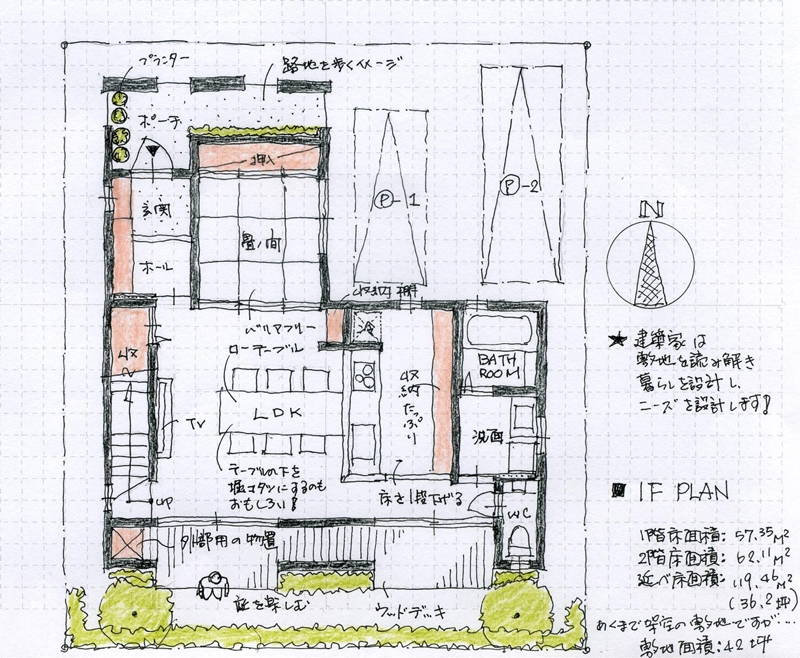 プランター
路地を歩くイメージ
ポーチ
押入
P-1
P-2
玄関
畳ノ間
N
ホール
収納棚
バリアフリー
ローテーブル
冷
★建築家は
敷地を読み解き
暮らしを設計し、
ニーズを設計します!
収
BATH
ROOM
収納たっぷり
TV
LDK
洗面
テーブルの下を
堀コタツにするのも
おもしろい!
床を1段下げる
UP
WC
■ 1F PLAN
外部用の物置
1階床面積: 57.35M2
2階床面積: 62.11M2
延べ床面積: 119.46M2
(36.2坪)
庭を楽しむ
ウッドデッキ
あくまで架空の敷地ですが…
敷地面積:42坪